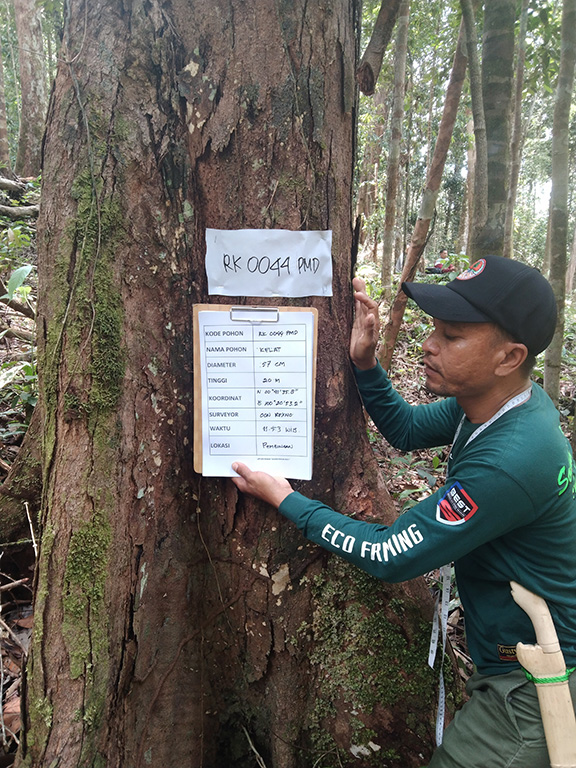 RK 0044 PMD
KODE POHON RK 0044 PMD
NAMA POHON KELAT
DIAMETER 57 CM
TINGGI 20 M
KOORDINAT
SURVEYOR
WAKTU 11.53 WIB
LOKASI PEMBINAAN
BEST
ECO FRMING